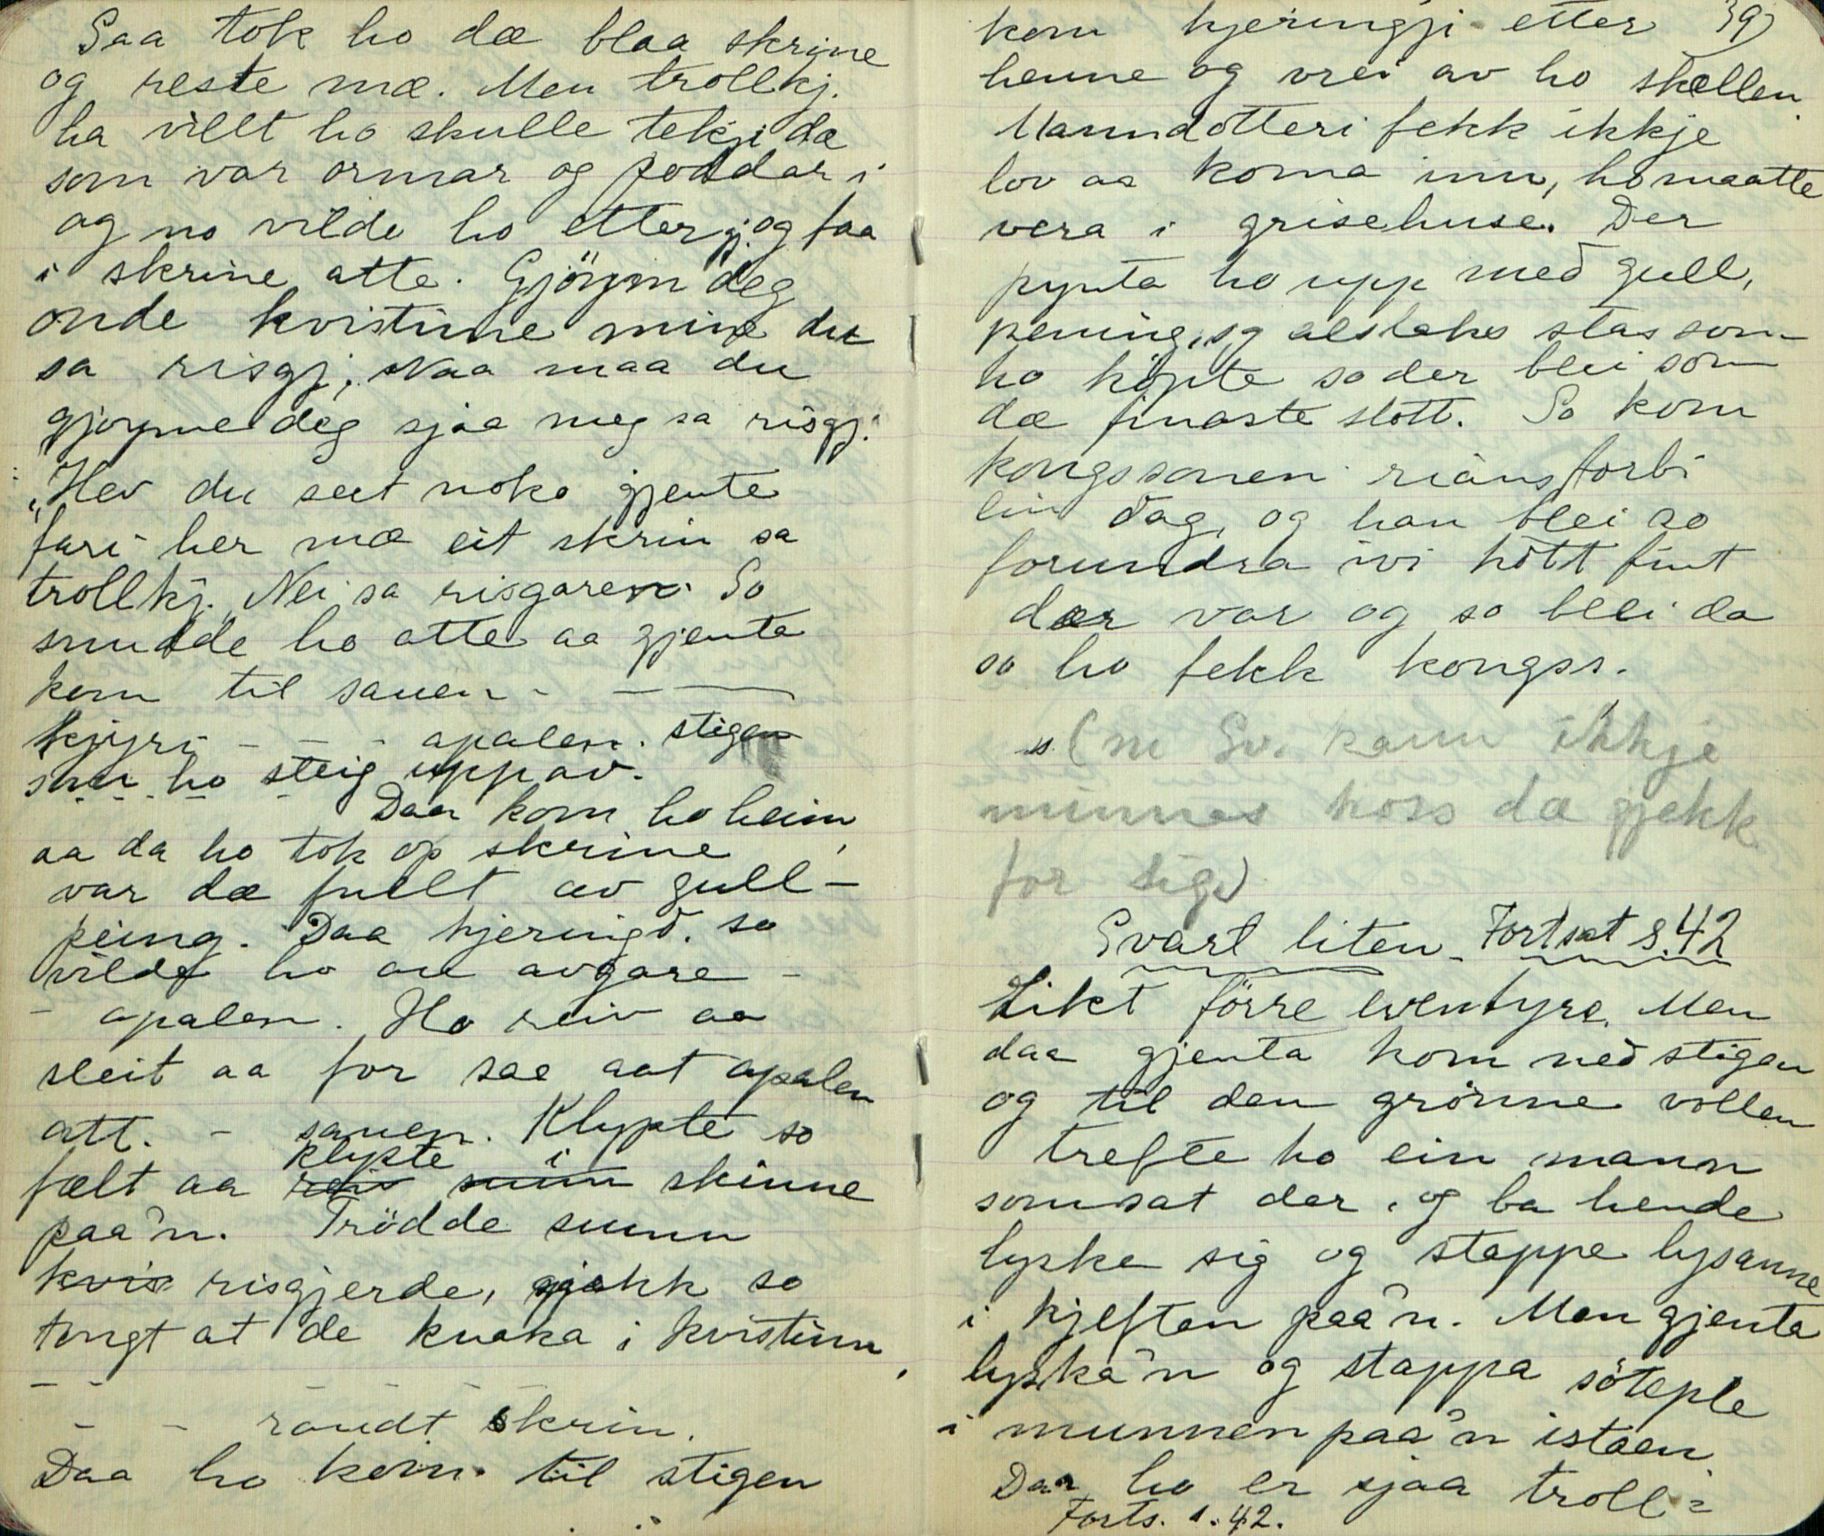 Saa tok ho dæ blaa skrine
og reste mæ. Men trollkj.
ha villt ho skulle tekji dæ
som var ormar og poddar i
og no vilde ho etterj. og faa
i skrine atte. Gjöym deg
onde kvistinne mine du
sa risgj. Naa maa du
gjoyme deg sjaa meg sa risgj.
"Hev du seet noko gjente
fari her mæ eit skrin sa
trollkj. Nei sa risgaren. So
snudde ho atte aa gjenta
kom til sauen - — —
kjyri - - - apalen. stigen
som ho steig uppav.
Daa kom ho heim,
aa da ho tok op skrine
var dæ fullt av gull-
peing. Daa kjeringd. so
vilde ho au avgare -
- apalen. Ho reiv aa
sleit aa for sae aat apalen
att. - sauen. Klypte so
klypte i
fælt aa reiv sunn skinne
paa'n. Trödde sunn
kvis risgjerde, gjekk so
tongt at de knaka i kvistinn,
- - - - -
- - raudt skrin.
Daa ho kom til stigen
39)
kom kjeringji etter
henne og vrei av ho skællen.
Manndotteri fekk ikkje
lov aa koma inn, ho maatte
vera i grisehuse. Der
pynta ho upp med gull,
pening, og alslaks stas som
ho köpte so der blei som
dæ finaste slott. So kom
kongssonen rians forbi
ein dag, og han blei so
forundra ivi hott fint
dær var og so blei da
so ho fekk kongss.
" (m Sv. kann ikkje
minnas hoss dæ gjekk
for sig)
Svart liten. Fortsat s. 42
Likt förre eventyre. Men
daa gjenta kom ned stigen
og til den grönne vollen
trefte ho ein mann
som sat der, og ba hende
lyske sig og stappe lysanne
i kjeften paa'n. Men gjenta
lyska'n og stappa söteple
i munnen paa'n istaen
Daa ho er sjaa troll=
Forts. s. 42.